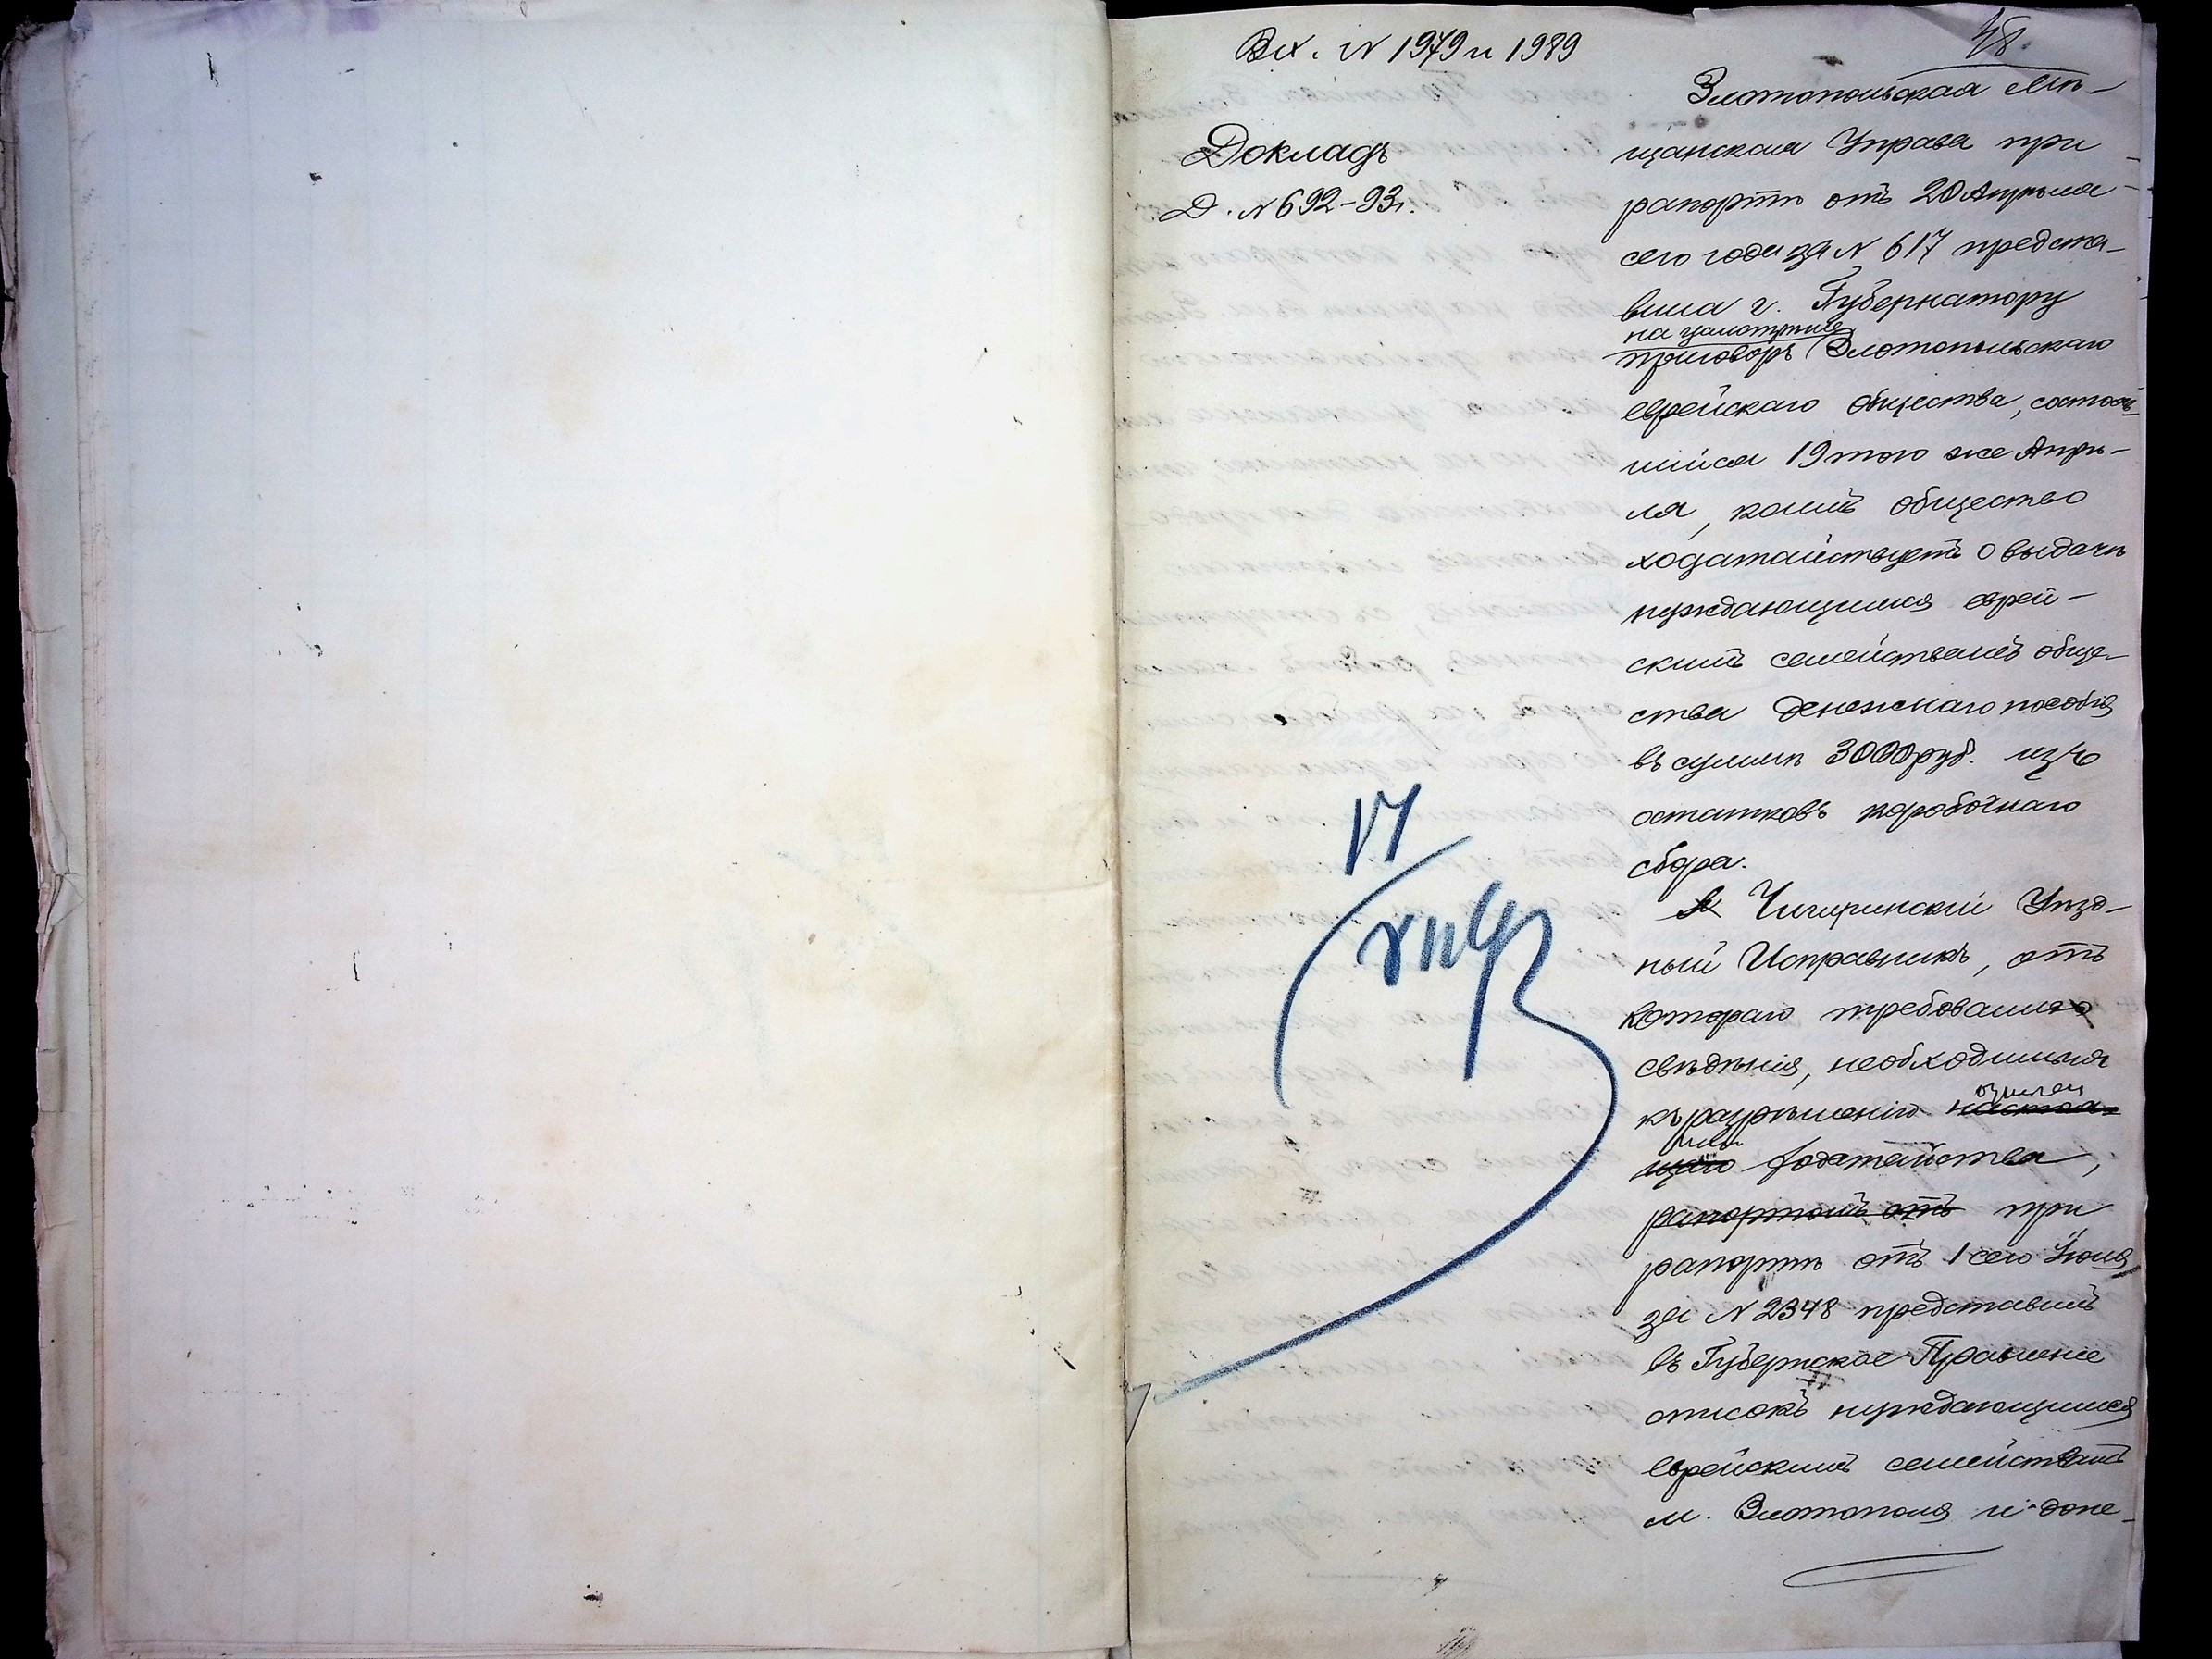 Вх. N 1979 и 1989
48.
Докладъ
Д. N 692-93г.
Златопольская Мѣ-
щанская Управа при
рапортѣ отъ 20 Апрѣля
сего года за N 617 предста-
вила г. Губернатору
приговоръ Златопольскаго
еврейскаго общества, состояв-
шійся 19 того же Апрѣ-
ля, коимъ общество
ходатайствуетъ о выдачѣ
нуждающимся еврей-
скимъ семействамъ обще-
ства денежнаго пособія
въ суммѣ 3000 руб. изъ
остатковъ коробочнаго
сбора.
Чигиринскій Уѣзд-
ный Исправникъ, отъ
котораго требовались
свѣдѣнія, необходимыя
къ разрѣшенію настоя-
щаго ходатайства,
рапортомъ отъ при
рапортѣ отъ 1 сего Іюля
за N 2348 представилъ
въ Губернское Правленіе
списокъ нуждающимся
еврейскимъ семействамъ
м. Златополя и доне-